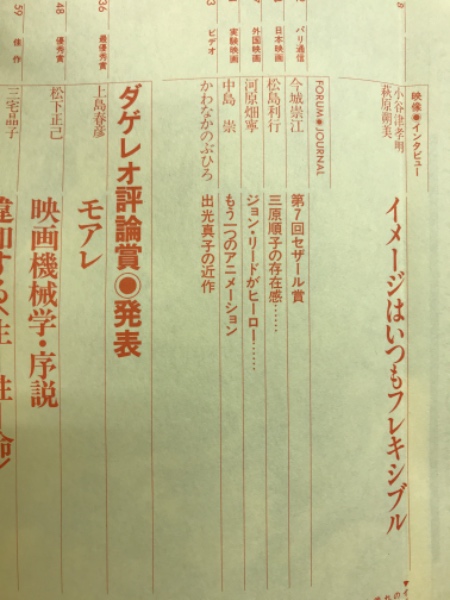 8
映像●インタビュー
小谷津孝明
萩原朔美
イメージはいつもフレキシブル
FORUM●JOURNAL
パリ通信
今城崇江
第7回セザール賞
日本映画
松島利行
三原順子の存在感……
外国映画
河原畑寧
ジョン・リードがヒーロー……
実験映画
中島 崇
もう一つのアニメーション
ビデオ
かわなかのぶひろ
出光真子の近作
ダゲレオ評論賞◉発表
36
最優秀賞
上島春彦
モアレ
48
優秀賞
松下正己
映画機械学・序説
59
佳作
三宅晶子